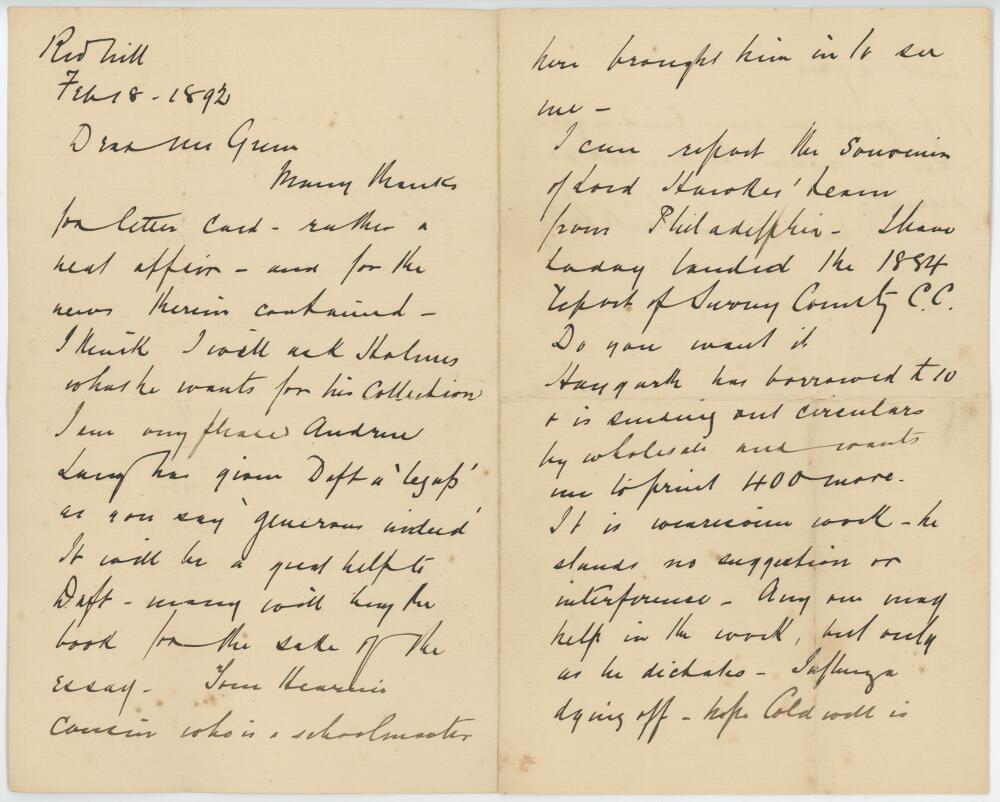 Redhill
Feb 18 - 1892
Dear Mr Green
Many thanks
for letter card - rather a
neat affair - and for the
news therein contained -
I think I will ask Holmes
what he wants for his Collection
I am very pleased Andrew
Lang has given Daft a 'leg up'
as you say 'generous indeed'
It will be a great help to
Daft - many will buy the
book for the sake of the
essay - Tom Hearne's
cousin who is a schoolmaster
here brought him in to see
me -
I can report the Souvenir
of Lord Hawkes' team
from Philadelphia - I have
today landed the 1884
report of Surrey County C.C.
Do you want it
Haygarth has borrowed £10
& is sending out circulars
by wholesale and wants
me to print 400 more.
It is wearisome work - he
stands no suggestion or
interference - Any one may
help in the work, but only
as he dictates - Influenza
dying off - hope Coldwell is